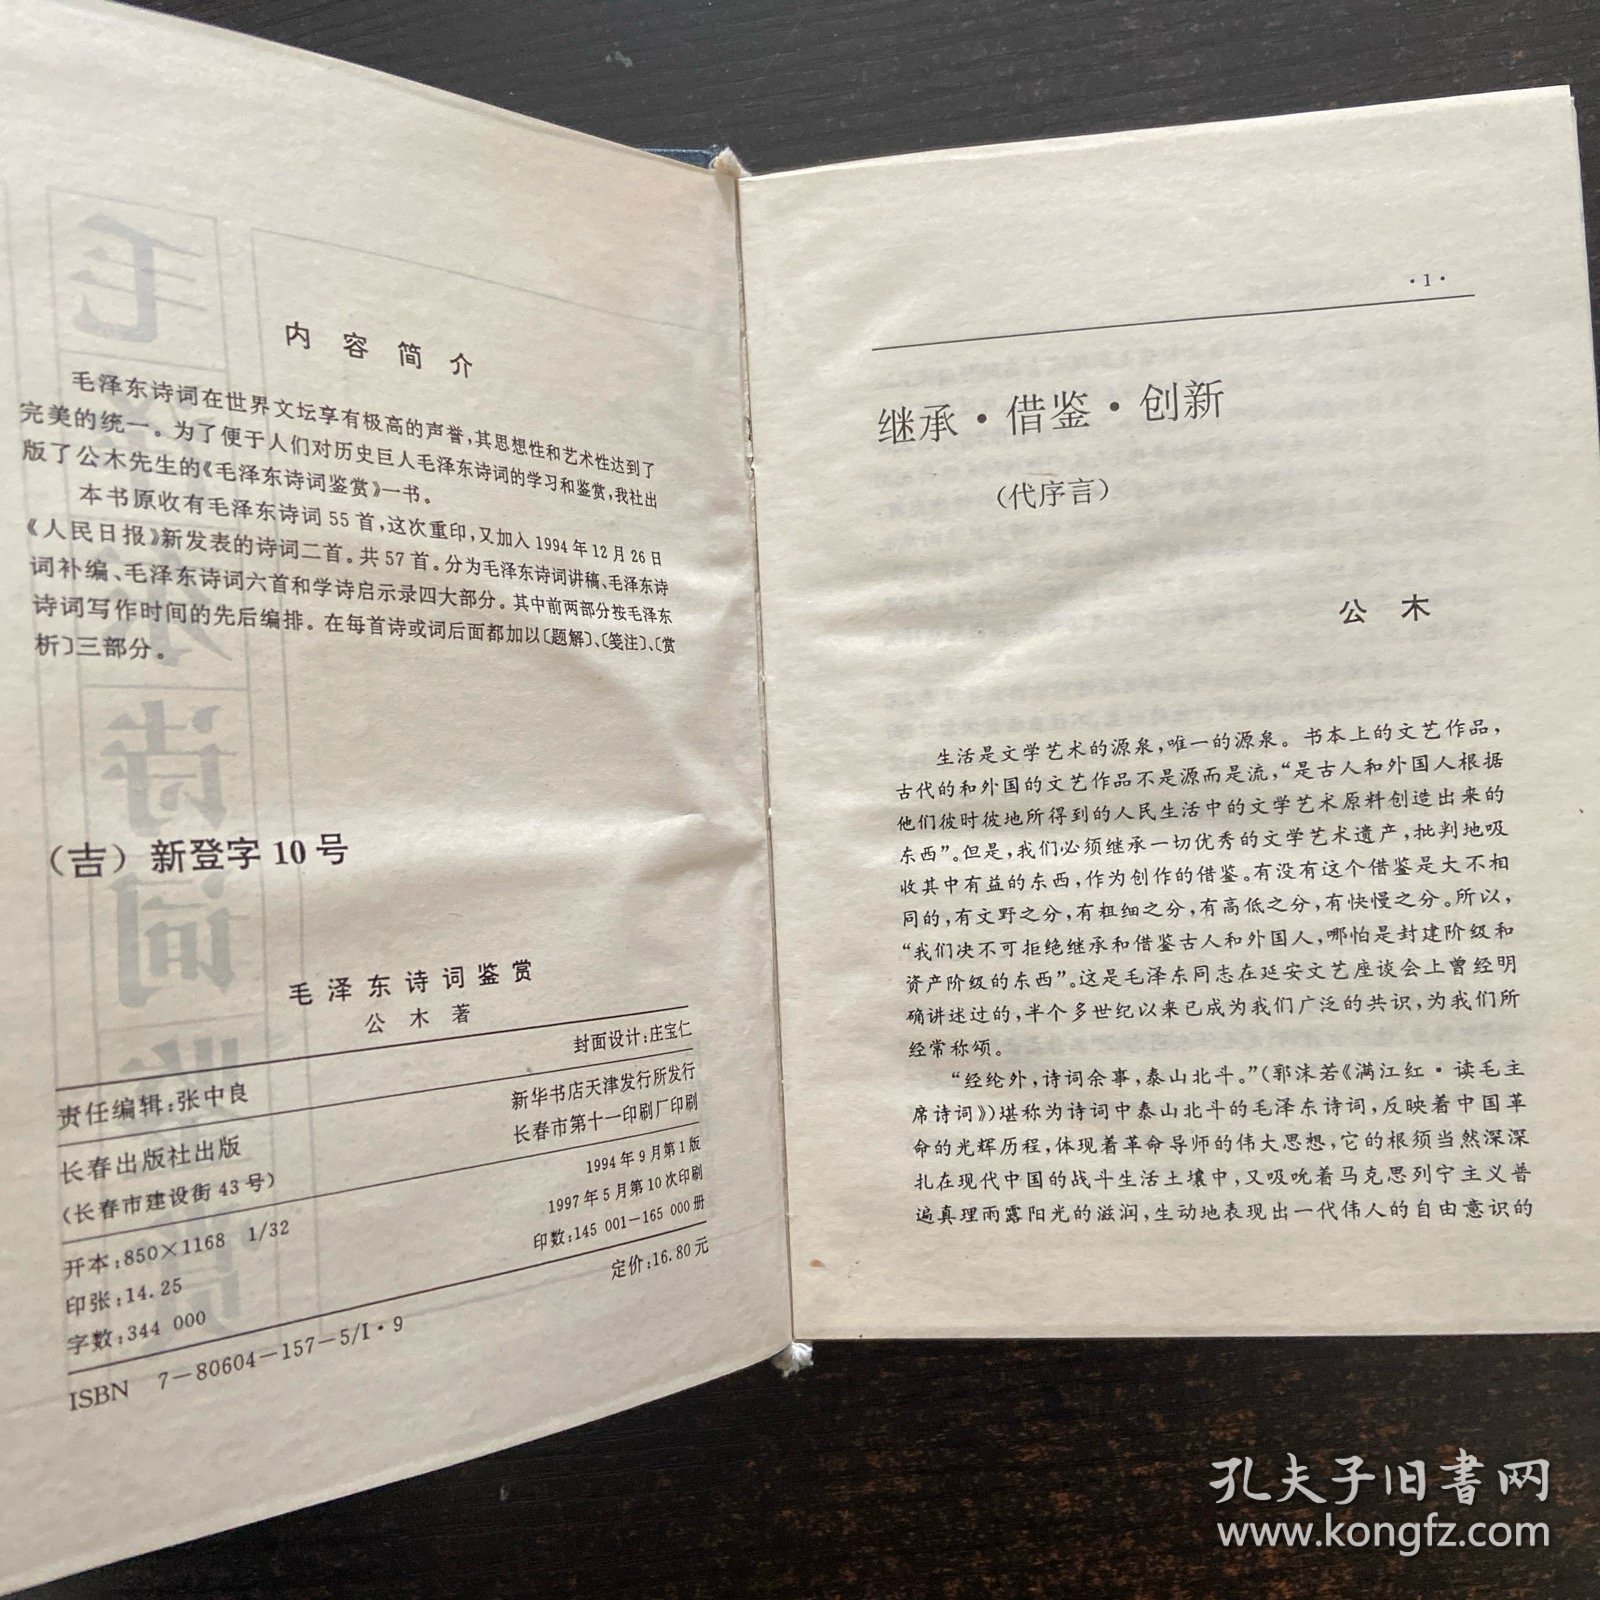 内容简介
毛泽东诗词在世界文坛享有极高的声誉,其思想性和艺术性达到了
完美的统一。为了便于人们对历史巨人毛泽东诗词的学习和鉴赏,我社出
版了公木先生的《毛泽东诗词鉴赏》一书。
本书原收有毛泽东诗词55首,这次重印,又加入1994年12月26日
《人民日报》新发表的诗词二首。共57首。分为毛泽东诗词讲稿、毛泽东诗
词补编、毛泽东诗词六首和学诗启示录四大部分。其中前两部分按毛泽东
诗词写作时间的先后编排。在每首诗或词后面都加以〔题解〕、〔笺注〕、〔赏
析〕三部分。
(吉)新登字10号
毛泽东诗词鉴赏
公木著
封面设计:庄宝仁
责任编辑:张中良
新华书店天津发行所发行
长春出版社出版
长春市第十一印刷厂印刷
(长春市建设街43号)
1994年9月第1版
1997年5月第10次印刷
开本:850×1168 1/32
印数:145 001—165 000册
印张:14.25
定价:16.80元
字数:344 000
ISBN 7—80604—157—5/I·9
·1·
继承·借鉴·创新
(代序言)
公木
生活是文学艺术的源泉,唯一的源泉。书本上的文艺作品,
古代的和外国的文艺作品不是源而是流,“是古人和外国人根据
他们彼时彼地所得到的人民生活中的文学艺术原料创造出来的
东西”。但是,我们必须继承一切优秀的文学艺术遗产,批判地吸
收其中有益的东西,作为创作的借鉴。有没有这个借鉴是大不相
同的,有文野之分,有粗细之分,有高低之分,有快慢之分。所以,
“我们决不可拒绝继承和借鉴古人和外国人,哪怕是封建阶级和
资产阶级的东西”。这是毛泽东同志在延安文艺座谈会上曾经明
确讲述过的,半个多世纪以来已成为我们广泛的共识,为我们所
经常称颂。
“经纶外,诗词余事,泰山北斗。”(郭沫若《满江红·读毛主
席诗词》)堪称为诗词中泰山北斗的毛泽东诗词,反映着中国革
命的光辉历程,体现着革命导师的伟大思想,它的根须当然深深
扎在现代中国的战斗生活土壤中,又吸吮着马克思列宁主义普
遍真理雨露阳光的滋润,生动地表现出一代伟人的自由意识的
孔夫子旧书网
www.kongfz.com